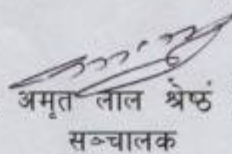 अमृत लाल श्रेष्ठ
सञ्चालक